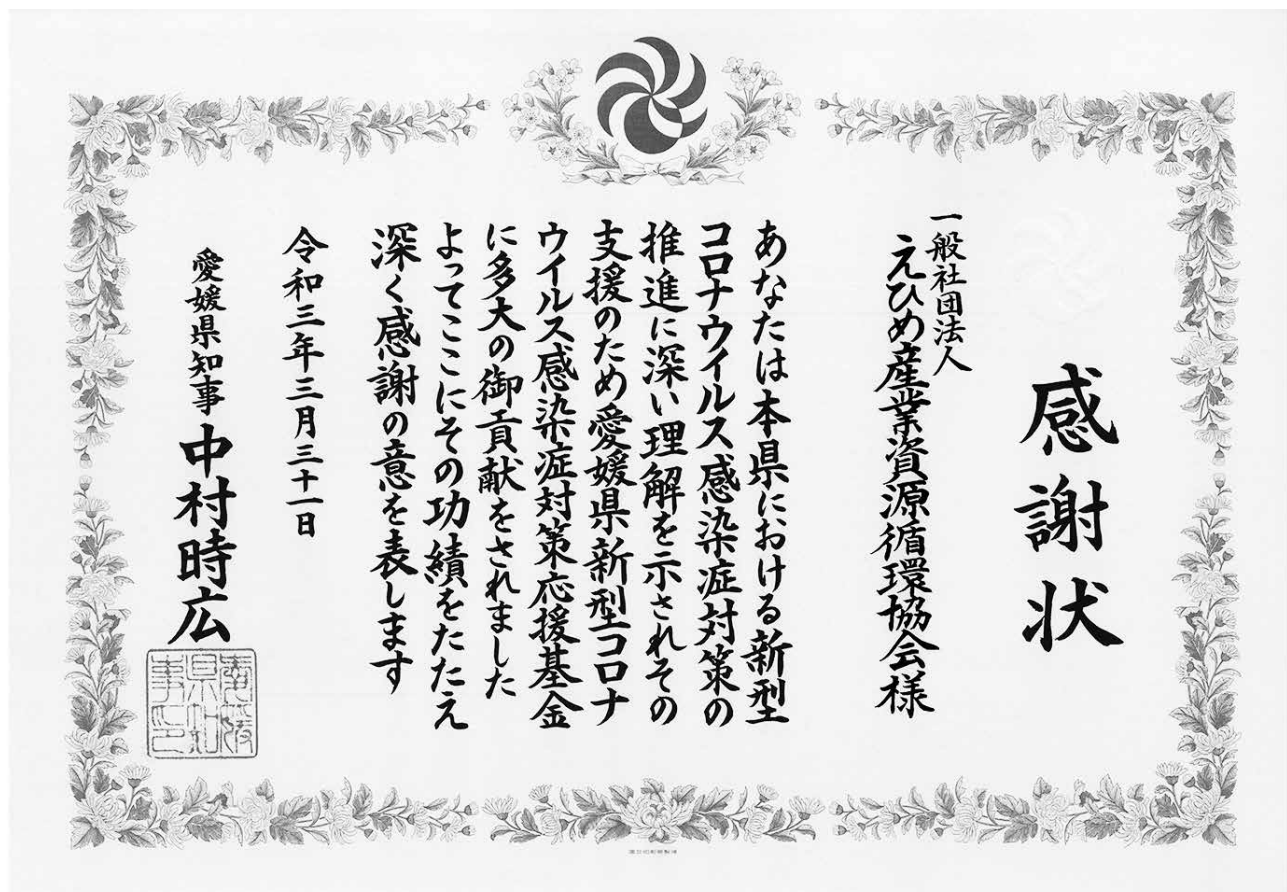 感謝状
一般社団法人
えひめ産業資源循環協会様
あなたは本県における新型
コロナウイルス感染症対策の
推進に深い理解を示されその
支援のため愛媛県新型コロナ
ウイルス感染症対策応援基金
に多大の御貢献をされました
よってここにその功績をたたえ
深く感謝の意を表します
令和三年三月三十一日
愛媛県知事 中村時広
愛媛県知事印